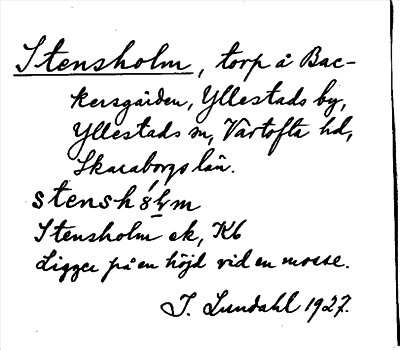 Stensholm, torp å Bac-
kersgården, Yllestads by,
Yllestads sn, Vartofta hd,
Skaraborgs län.
stensh8lm
Stensholm ek, K6
Ligger på en höjd vid en mosse.
J. Lundahl 1927.